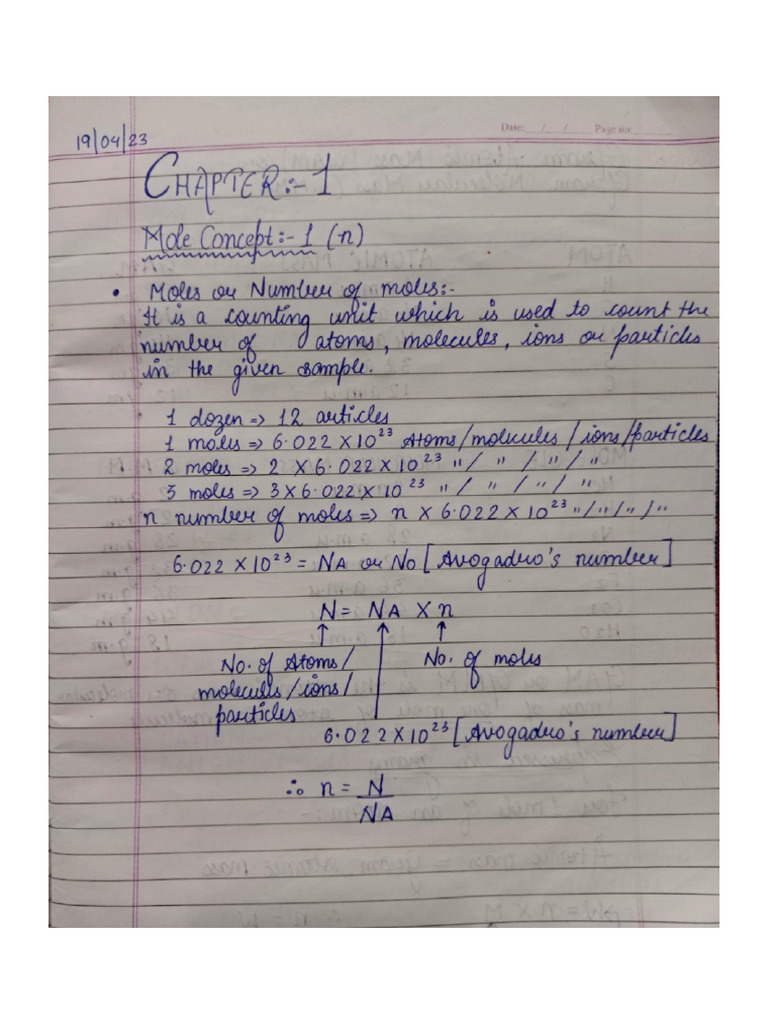 Date: __/__/__ Page no: ____
19/04/23
CHAPTER:- 1
Mole Concept:- 1 (n)
• Moles or Number of moles:-
It is a counting unit which is used to count the
number of atoms, molecules, ions or particles
in the given sample.
1 dozen => 12 articles
1 moles => 6.022 X 10²³ Atoms/molecules/ions/particles
2 moles => 2 X 6.022 X 10²³ "/ "/ "/ "
3 moles => 3 X 6.022 X 10²³ "/ "/ "/ "
n number of moles => n X 6.022 X 10²³ "/ "/ "/ "
6.022 X 10²³ = NA or No [Avogadro's number]
N = NA X n
↑ ↑ ↑
No. of Atoms/ No. of moles
molecules/ions/
particles
6.022 X 10²³ [Avogadro's number]
∴ n = N
NA